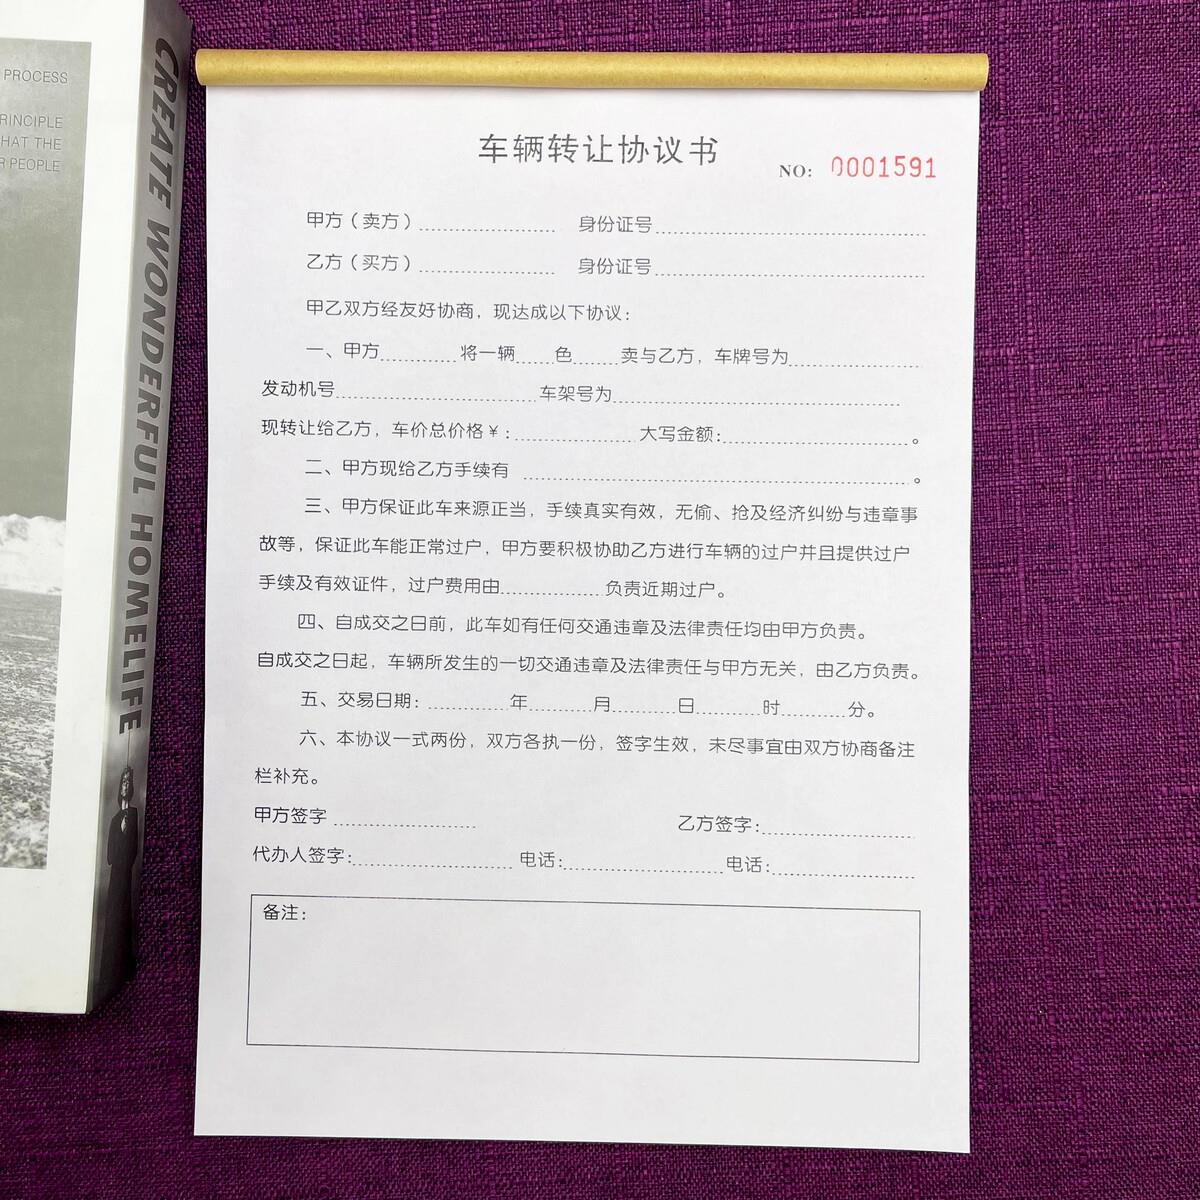 PROCESS
RINCIPLE
HAT THE
R PEOPLE
CREATE WONDERFUL HOMELIFE
车辆转让协议书
NO: 0001591
甲方（卖方） 身份证号
乙方（买方） 身份证号
甲乙双方经友好协商，现达成以下协议：
一、甲方 将一辆 色 卖与乙方，车牌号为
发动机号 车架号为
现转让给乙方，车价总价格￥： 大写金额： 。
二、甲方现给乙方手续有 。
三、甲方保证此车来源正当，手续真实有效，无偷、抢及经济纠纷与违章事
故等，保证此车能正常过户，甲方要积极协助乙方进行车辆的过户并且提供过户
手续及有效证件，过户费用由 负责近期过户。
四、自成交之日前，此车如有任何交通违章及法律责任均由甲方负责。
自成交之日起，车辆所发生的一切交通违章及法律责任与甲方无关，由乙方负责。
五、交易日期： 年 月 日 时 分。
六、本协议一式两份，双方各执一份，签字生效，未尽事宜由双方协商备注
栏补充。
甲方签字 乙方签字：
代办人签字： 电话： 电话：
备注：